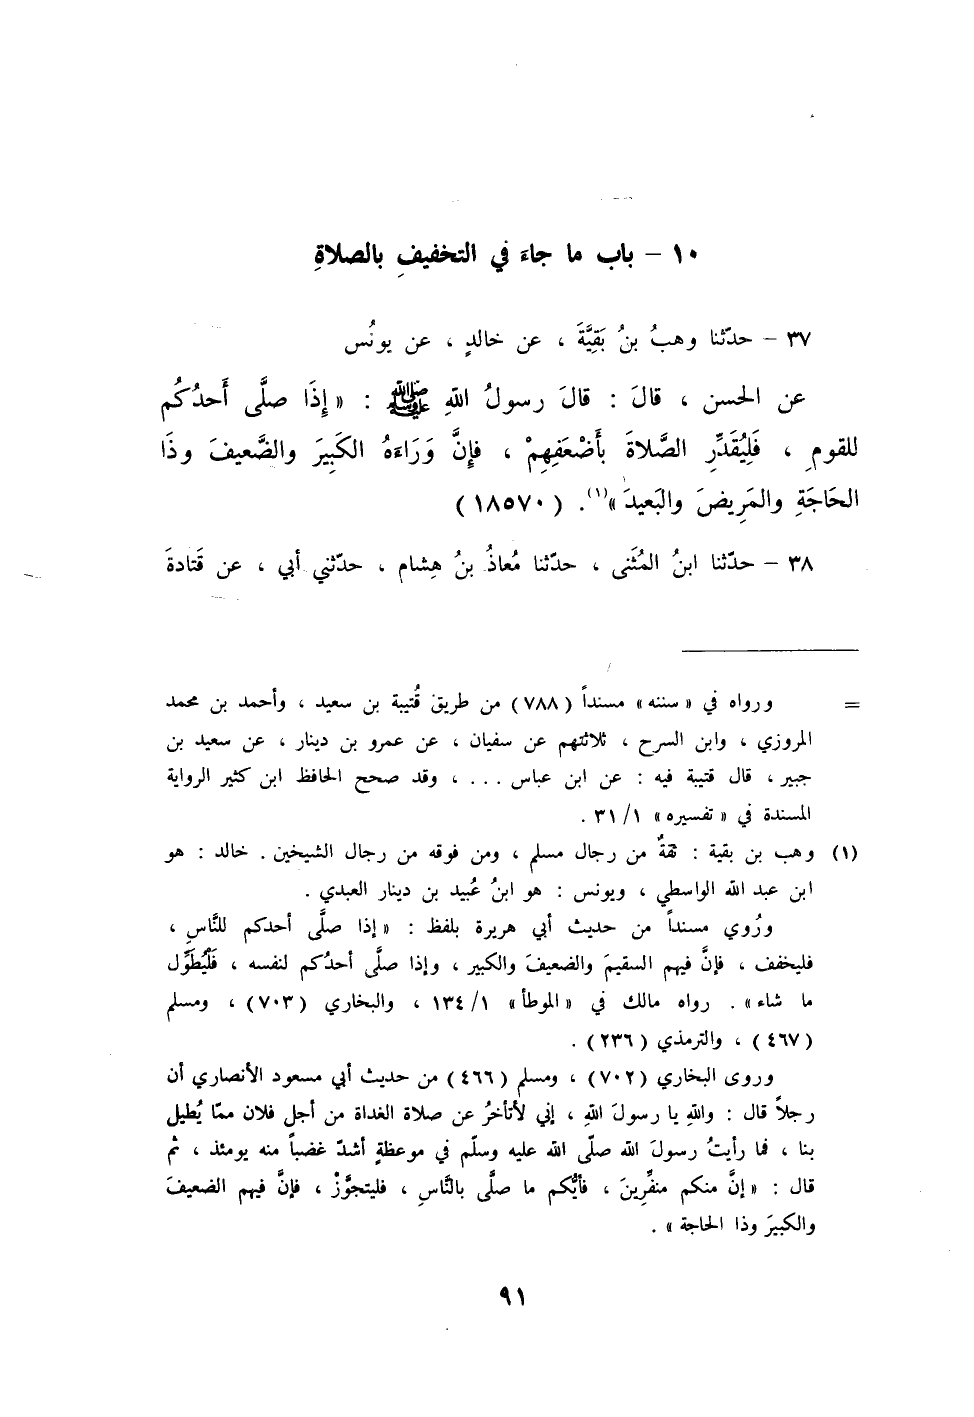 ١٠ – باب ما جاءَ في التخفيفِ بالصلاةِ
٣٧ – حدّثنا وهبُ بنُ بَقِيَّةَ ، عن خالدٍ ، عن يونُس
عن الحسن ، قالَ : قالَ رسولُ اللهِ ﷺ : « إِذَا صلَّى أَحدُكُم
للقومِ ، فَلِيُقَدِّرِ الصَّلاةَ بأَضْعَفِهِمْ ، فإنَّ وَرَاءَهُ الكَبِيرَ والضَّعيفَ وذَا
الحَاجَةِ والمَرِيضَ والبَعيدَ »(١). (١٨٥٧٠)
٣٨ – حدّثنا ابنُ المُثَنى ، حدّثنا مُعاذُ بنُ هِشام ، حدّثني أبي ، عن قَتادةَ
= ورواه في « سننه » مسنداً (٧٨٨) من طريق قُتيبة بن سعيد ، وأحمد بن محمد
المروزي ، وابن السرح ، ثلاثتهم عن سفيان ، عن عمرو بن دينار ، عن سعيد بن
جبير ، قال قتيبة فيه : عن ابن عباس . . . ، وقد صحح الحافظ ابن كثير الرواية
المسندة في « تفسيره » ٣١/١ .
(١) وهب بن بقية : ثقةٌ من رجال مسلم ، ومن فوقه من رجال الشيخين . خالد : هو
ابن عبد الله الواسطي ، ويونس : هو ابنُ عُبيد بن دينار العبدي .
ورُوي مسنداً من حديث أبي هريرة بلفظ : « إذا صلَّى أحدكم للنَّاسِ ،
فليخفف ، فإنَّ فيهم السقيمَ والضعيفَ والكبير ، وإذا صلَّى أحدُكم لنفسه ، فَلْيُطوِّل
ما شاء » . رواه مالك في « الموطأ » ١٣٤/١ ، والبخاري (٧٠٣) ، ومسلم
(٤٦٧) ، والترمذي (٢٣٦) .
وروى البخاري (٧٠٢) ، ومسلم (٤٦٦) من حديث أبي مسعود الأنصاري أن
رجلاً قال : واللهِ يا رسولَ اللهِ ، إني لأتأخرُ عن صلاة الغداة من أجل فلان ممّا يُطيل
بنا ، فما رأيتُ رسولَ الله صلّى الله عليه وسلّم في موعظةٍ أشدّ غضباً منه يومئذ ، ثم
قال : « إنَّ منكم منفِّرينَ ، فأيُّكم ما صلَّى بالنَّاسِ ، فليتجوَّزْ ، فإنَّ فيهم الضعيفَ
والكبيرَ وذا الحاجة » .
٩١